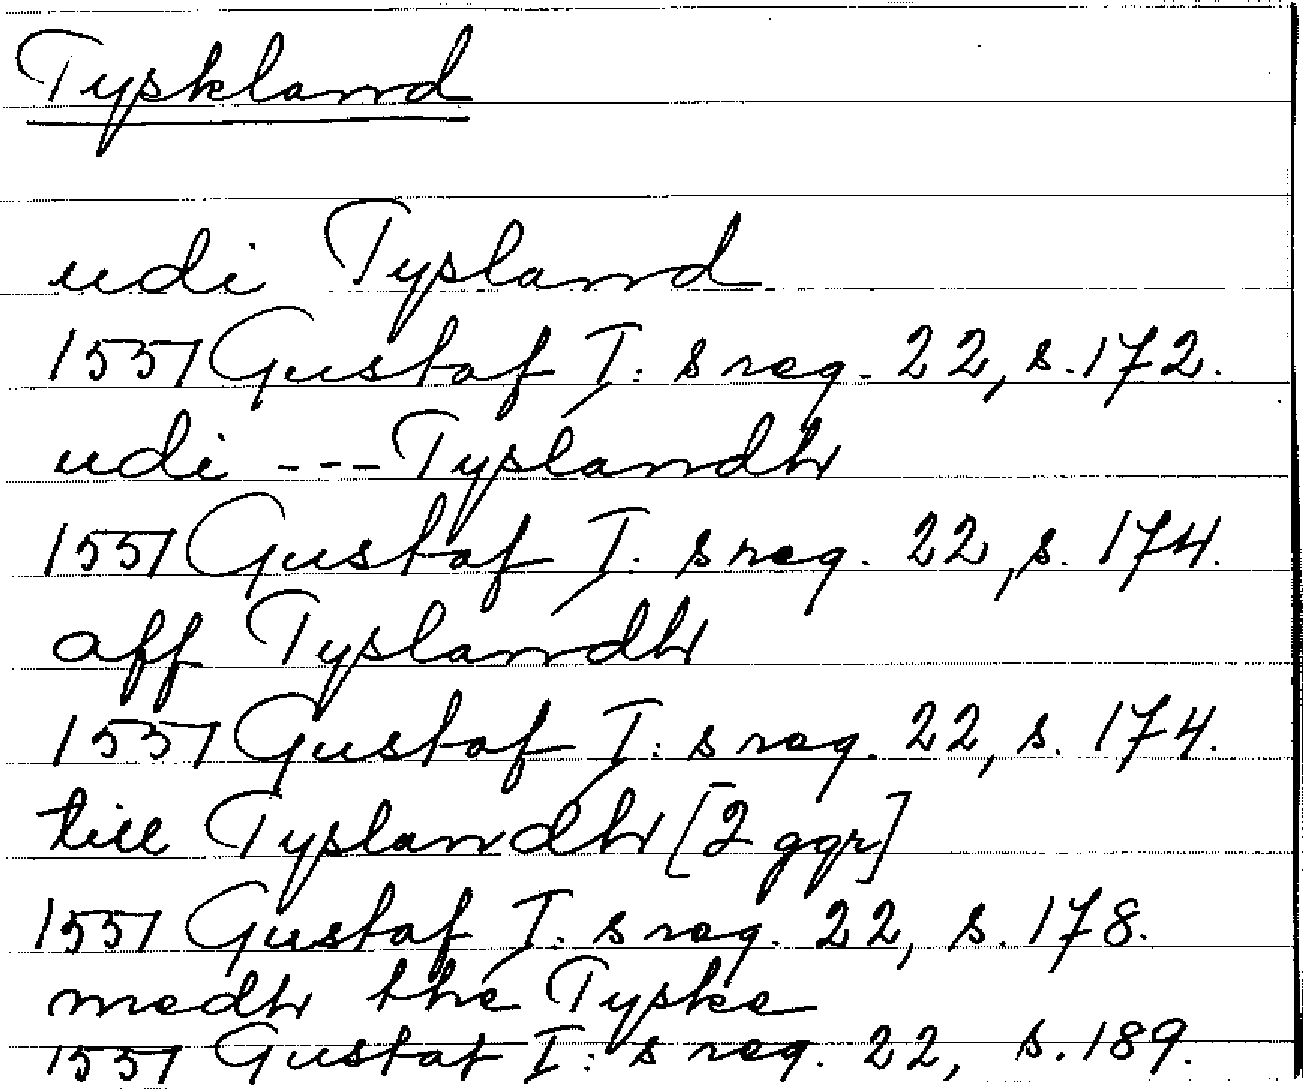 Tyskland
udi Tysland
1551 Gustaf I:s reg. 22, s. 172.
udi --- Tyslandh
1551 Gustaf I:s reg. 22, s. 174.
aff Tyslandh
1551 Gustaf I:s reg. 22, s. 174.
till Tyslandh [2 ggr]
1551 Gustaf I:s reg. 22, s. 178.
medh the Tyske
1551 Gustaf I:s reg. 22, s. 189.